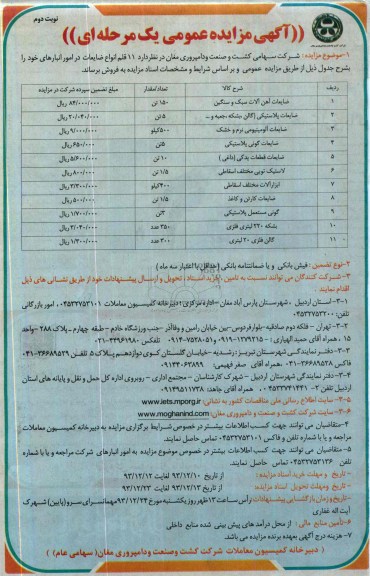 نوبت دوم
((آگهی مزایده عمومی یک مرحله ای))
۱-موضوع مزایده: شرکت سهامی کشت و صنعت ودامپروری مغان در نظردارد ۱۱ قلم انواع ضایعات در امور انبارهای خود را
بشرح جدول ذیل از طریق مزایده عمومی و بر اساس شرایط و مشخصات اسناد مزایده به فروش برساند.
ردیف شرح کالا تعداد/مقدار مبلغ تضمین سپرده شرکت در مزایده
۱ ضایعات آهن آلات سبک و سنگین ۱۵۰ تن ۸۴/۰۰۰/۰۰۰ ریال
۲ ضایعات پلاستیکی (گالن بشکه -جعبه و ... ۵ تن ۲/۰۴۰/۰۰۰ ریال
۳ ضایعات آلومینیومی نرم و خشک ۵۰۰کیلو ۹/۰۰۰/۰۰۰ ریال
۴ ضایعات گونی پلاستیکی ۵تن ۶۵۰/۰۰۰ ریال
۵ ضایعات قطعات یدکی (داغی) ۱۰ تن ۵/۶۰۰/۰۰۰ ریال
۶ لاستیک تویی مختلف اسقاطی ۱/۵ تن ۸۰۰/۰۰۰ ریال
۷ ابزارآلات مختلف اسقاطی ۴۰۰کیلو ۳/۳۰۰/۰۰۰ ریال
۸ ضایعات کارتن و کاغذ ۱/۵ تن ۵۰۰/۰۰۰ ریال
۹ گونی مستعمل پلاستیکی ۳تن ۱/۷۰۰/۰۰۰ ریال
۱۰ بشکه ۲۲۰ لیتری فلزی ۳۵۰ عدد ۲/۰۴۰/۰۰۰ ریال
۱۱ گالن فلزی ۲۰ لیتری ۳۰۰ عدد ۱/۲۰۰/۰۰۰ ریال
۲-نوع تضمین : فیش بانکی و یا ضمانتنامه بانکی (حداقل با اعتبار سه ماه)
۳- شرکت کنندگان می توانند نسبت به تامین ، خرید اسناد ، تحویل و ارسال پیشنهادات خود از طریق نشانی های ذیل
اقدام نمایند
۳-۱- استان اردبیل ، شهرستان پارس آباد مغان –اداره مرکزی –دبیرخانه کمیسیون معاملات ۰۴۵۳۲۷۵۳۱۰۱ امور بازرگانی
تلفن ۰۴۵۳۲۷۵۳۲۰۰
۳-۲- تهران - فلکه دوم صادقیه-بلوارفردوس-بین خیابان رامین و وفاآذر -جنب ورزشگاه خادم - طبقه چهارم-پلاک ۲۸۸ -واحد
۱۵ ، همراه آقای حمید الهیاری :
۳-۳- دفتر نمایندگی شهرستان تبریز: رشدیه -خیابان گلستان کوی دوازدهم- پلاک ۵ تلفن
فکس همراه آقای صفر فهیمی:
۳-۴- دفتر نمایندگی شهرستان اردبیل - شهرک کارشناسان - مجتمع اداری - روبروی اداره کل حمل و نقل و پایانه های استان
اردبیل تلفن ، همراه آقای جاهد:
۳-۵- سایت اطلاع رسانی ملی مناقصات کشور به نشانی: www.iets.mporg.ir
۳-۶- سایت شرکت کشت و صنعت و دامپروری مغان: www.moghanind.com
۴-متقاضیان می توانند جهت کسب اطلاعات بیشتر در خصوص شرایط برگزاری مزایده به دبیرخانه کمیسیون معاملات
مراجعه و یا با شماره تلفن و فاکس ۰۴۵۳۲۷۵۳۱۰۱ تماس حاصل نمایند.
۵-متقاضیان می توانند جهت کسب اطلاعات بیشتر در خصوص موضوع مزایده به امور انبارهای شرکت مراجعه و یا با شماره
تلفن ۰۴۵۳۲۷۵۳۱۳۶ تماس حاصل نمایند.
- تاریخ و مهلت خرید اسناد مزایده : از تاریخ ۹۳/۱۲/۱۰ لغایت ۹۳/۱۲/۱۲
- تاریخ ومهلت تحویل اسناد مزایده: از تاریخ ۹۳/۱۲/۱۳ لغایت ۹۳/۱۲/۲۳
- تاریخ وزمان بازگشایی پیشنهادات: رأس ساعت ۱۳ ظهر روز یکشنبه مورخ ۹۳/۱۲/۲۴ مهمانسرای سرو(پایین) شهرک
آیت اله غفاری
۶-تأمین منابع مالی : از محل درآمد های پیش بینی شده منابع داخلی
۷- هزینه درج آگهی بعهده برنده مزایده می باشد.
( دبیرخانه کمیسیون معاملات شرکت کشت و صنعت و دامپروری مغان (سهامی عام) )